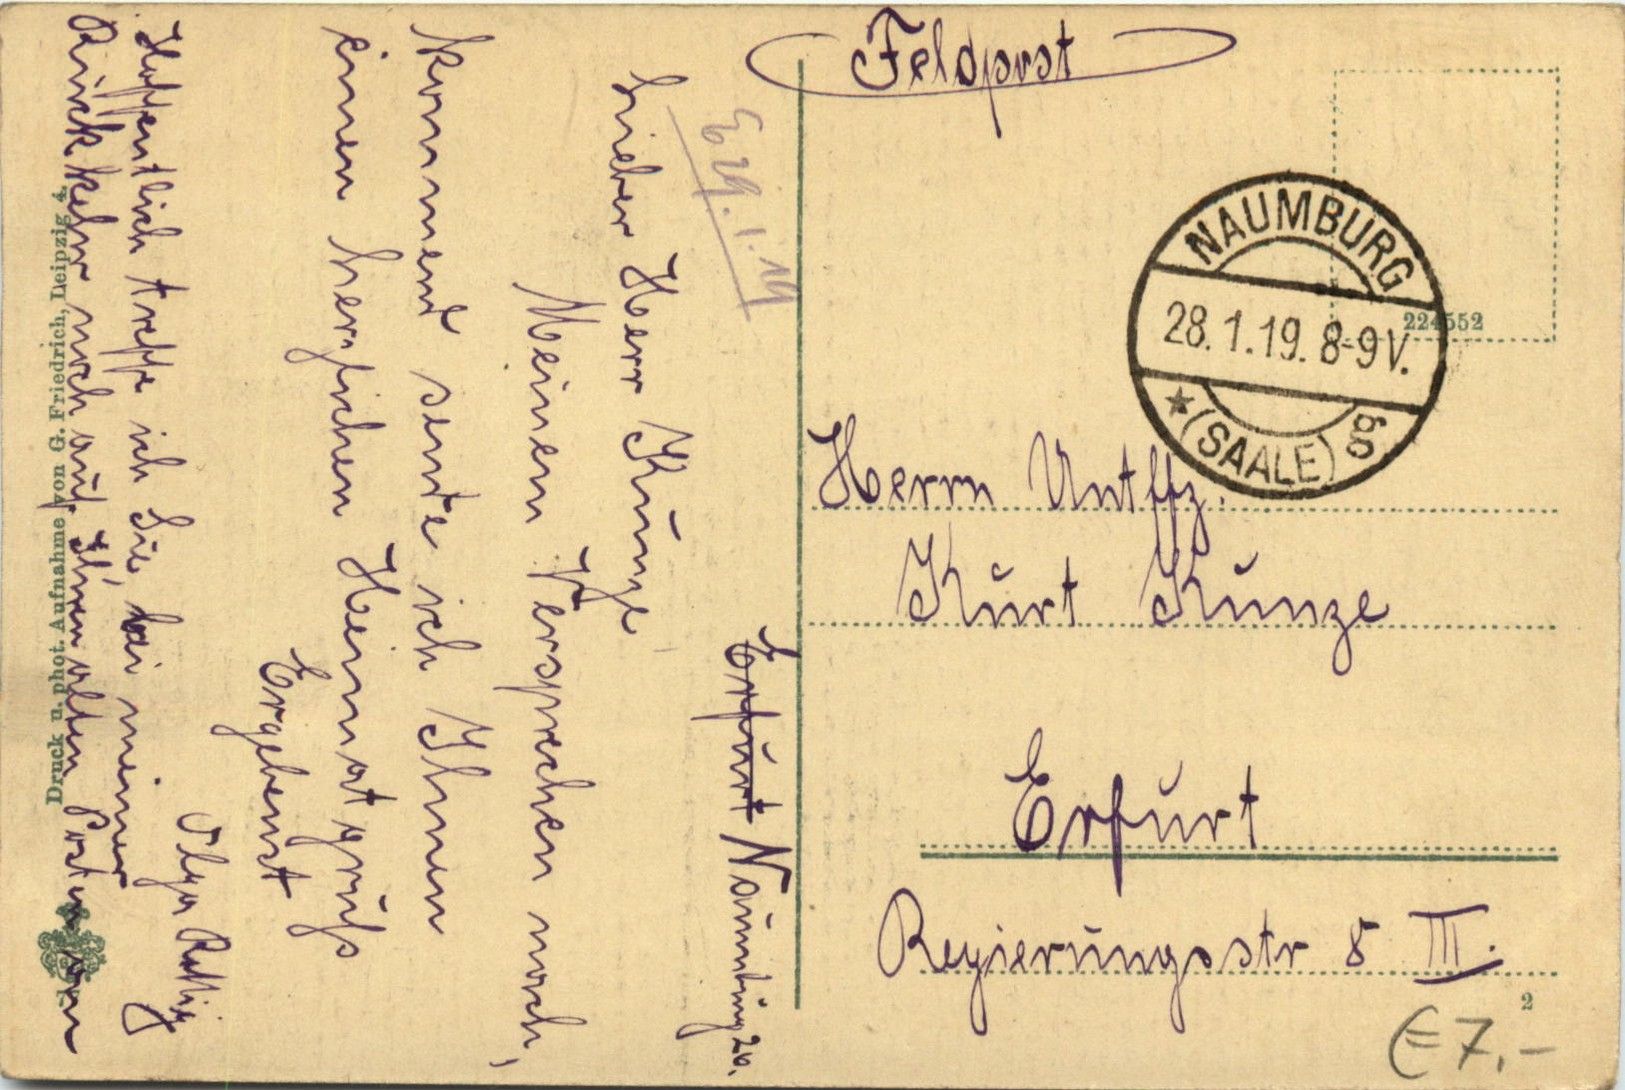 Feldpost
NAUMBURG
28.1.19. 8-9V.
* (SAALE) g
224552
Herrn Untffz.
Kurt Kunze
Erfurt
Regierungsstr 8 III.
2
€ 7,-
E 29.1.19
Erfurt Naumburg 26.
Lieber Herr Kunze
Meinem Versprechen nach,
kommend sende ich Ihnen
einen herzlichen Heimatgruß
Ergebenst
Olga Rettig
Hoffentlich treffe ich Sie, bei meiner
Rückkehr noch auf Ihrem alten Posten an
Druck u. phot. Aufnahme von G. Friedrich, Leipzig 4.